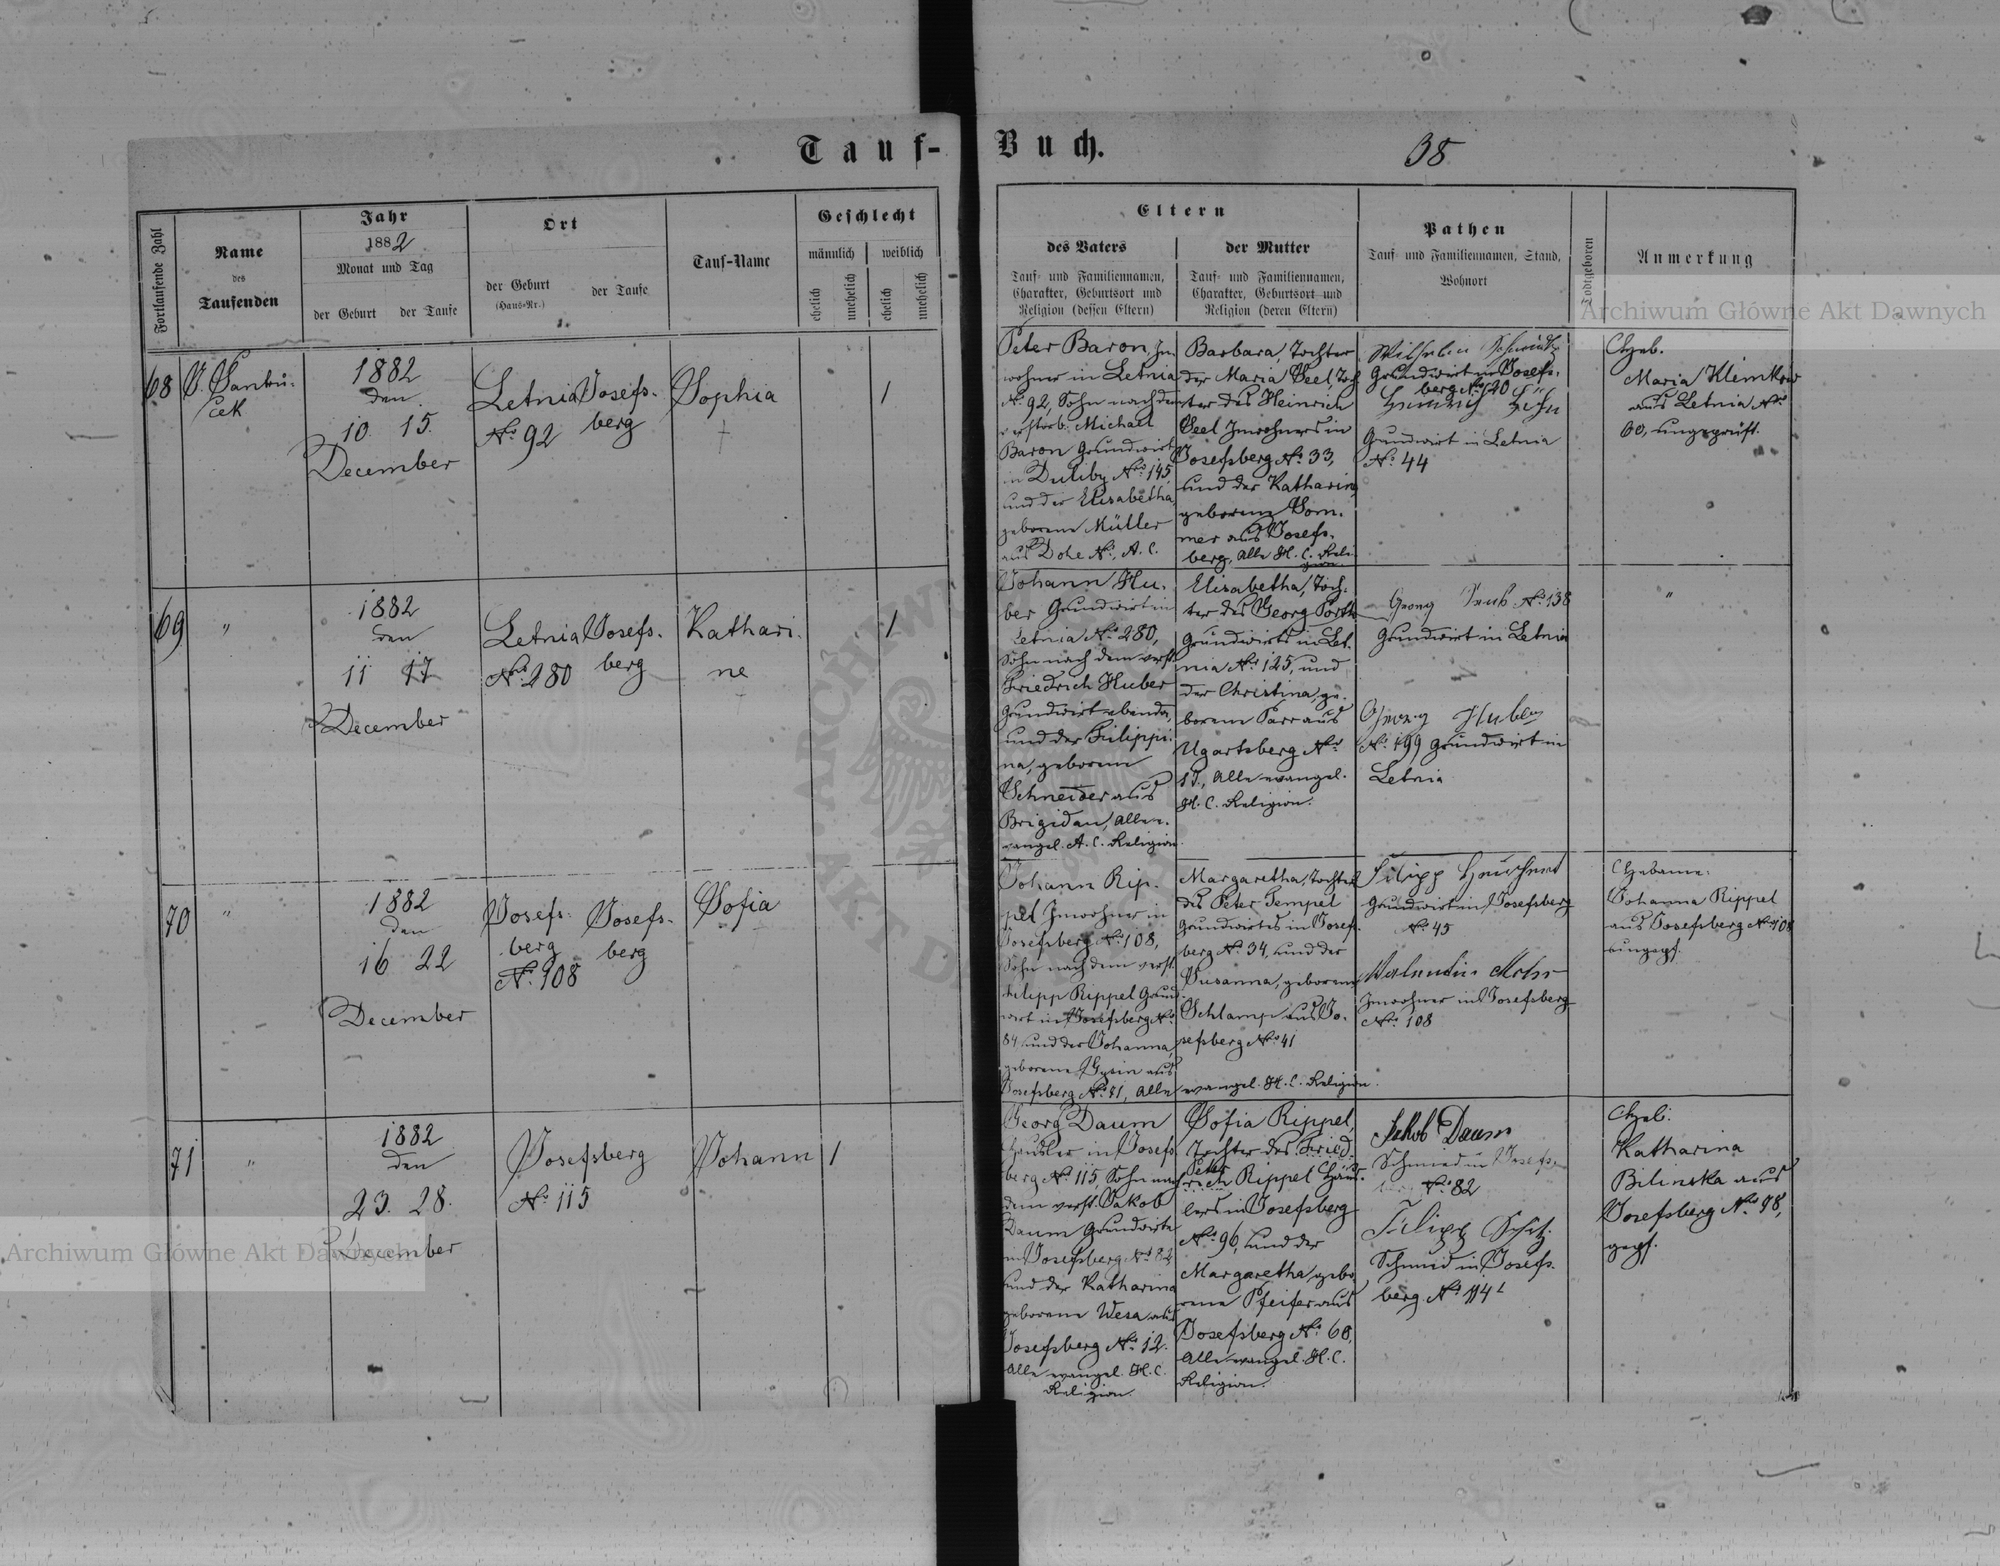 Tauf-Buch.
38
Fortlaufende Zahl
Name
des
Taufenden
Jahr
1882
Monat und Tag
der Geburt der Taufe
Ort
der Geburt
(Haus-Nr.)
der Taufe
Tauf-Name
Geschlecht
männlich weiblich
ehelich unehelich ehelich unehelich
Eltern
des Vaters
Tauf- und Familiennamen,
Charakter, Geburtsort und
Religion (dessen Eltern)
der Mutter
Tauf- und Familiennamen,
Charakter, Geburtsort und
Religion (deren Eltern)
Pathen
Tauf- und Familiennamen, Stand,
Wohnort
Todtgeboren
Anmerkung
68
1882
den
10. 15.
December
Letnia
No. 92
Josefs-
berg
Sophia
1
Peter Baron, In-
wohner in Letnia
No. 92, Sohn nach dem
verstorb. Michael
Baron Grundwirt
in Duliby No. 145,
und der Elisabetha,
geborene Müller
aus No., A. C.
Barbara, Tochter
der Maria Seel, Toch-
ter des Heinrich
Seel Inwohners in
Josefsberg No. 33,
und der Katharina
geborene Som-
mer aus Josefs-
berg, alle H. C. Reli-
gion.
Wilhelm Schmidt
Grundwirt in Josefs-
berg No. 20
Grundwirt in Letnia
No. 44
Geb.
Maria
aus Letnia No.
60, ungeprüft.
69
"
1882
den
11. 17.
December
Letnia
No. 280
Josefs-
berg
Kathari-
ne
1
Johann Hu-
ber Grundwirt in
Letnia No. 280,
Sohn nach dem verst.
Friedrich Huber
Grundwirt ebenda,
und der Filippi-
na, geborene
Schneider aus
Brigidau, alle e-
vangel. A. C. Religion.
Elisabetha, Toch-
ter des Georg
Grundwirts in Let-
nia No. 125, und
der Christina, ge-
borene Parr aus
Ugartsberg No.
17., alle evangel.
H. C. Religion.
Georg No. 138
Grundwirt in Letnia
Georg Huber
No. 199 Grundwirt in
Letnia
"
70
"
1882
den
16 22
December
Josefs-
berg
No. 108
Josefs-
berg
Sofia
Johann Rip-
pel Inwohner in
Josefsberg No. 108,
Sohn nach dem verst.
Filipp Rippel Grund-
wirt in Josefsberg No.
84 und der Johanna,
geborene aus
Josefsberg No. 41, alle
Margaretha, Tochter
des Peter Tempel
Grundwirtes in Josefs-
berg No. 34, und der
Susanna, geborene
Schlamp aus Jo-
sefsberg No. 41
evangel. H. C. Religion.
Filipp
Grundwirt in Josefsberg
No. 45
Valentin Mohr
Inwohner in Josefsberg
No. 108
Hebame:
Johanna Rippel
aus Josefsberg No. 108
ungepf.
71
"
1882
den
23. 28.
December
Josefsberg
No. 115
Johann
1
Georg Daum
Häusler in Josefs-
berg No. 115, Sohn nach
dem verst. Jakob
Daum Grundwirts
in Josefsberg No. 82
und der Katharina
geborene Wesa aus
Josefsberg No. 12.
Alle evangel. H. C.
Religion.
Sofia Rippel,
Tochter des Fried-
Peter
rich Rippel Häus-
lers in Josefsberg
No. 96, und der
Margaretha gebo-
rene Pfeifer aus
Josefsberg No. 60,
Alle evangel. H. C.
Religion.
Jakob Daum
Schmied in Josefs-
No. 82
Filipp
Schmied in Josefs-
berg No. 114
Geb.
Katharina
Bilinska aus
Josefsberg No. 98,
gepf.
Archiwum Główne Akt Dawnych
Archiwum Główne Akt Dawnych